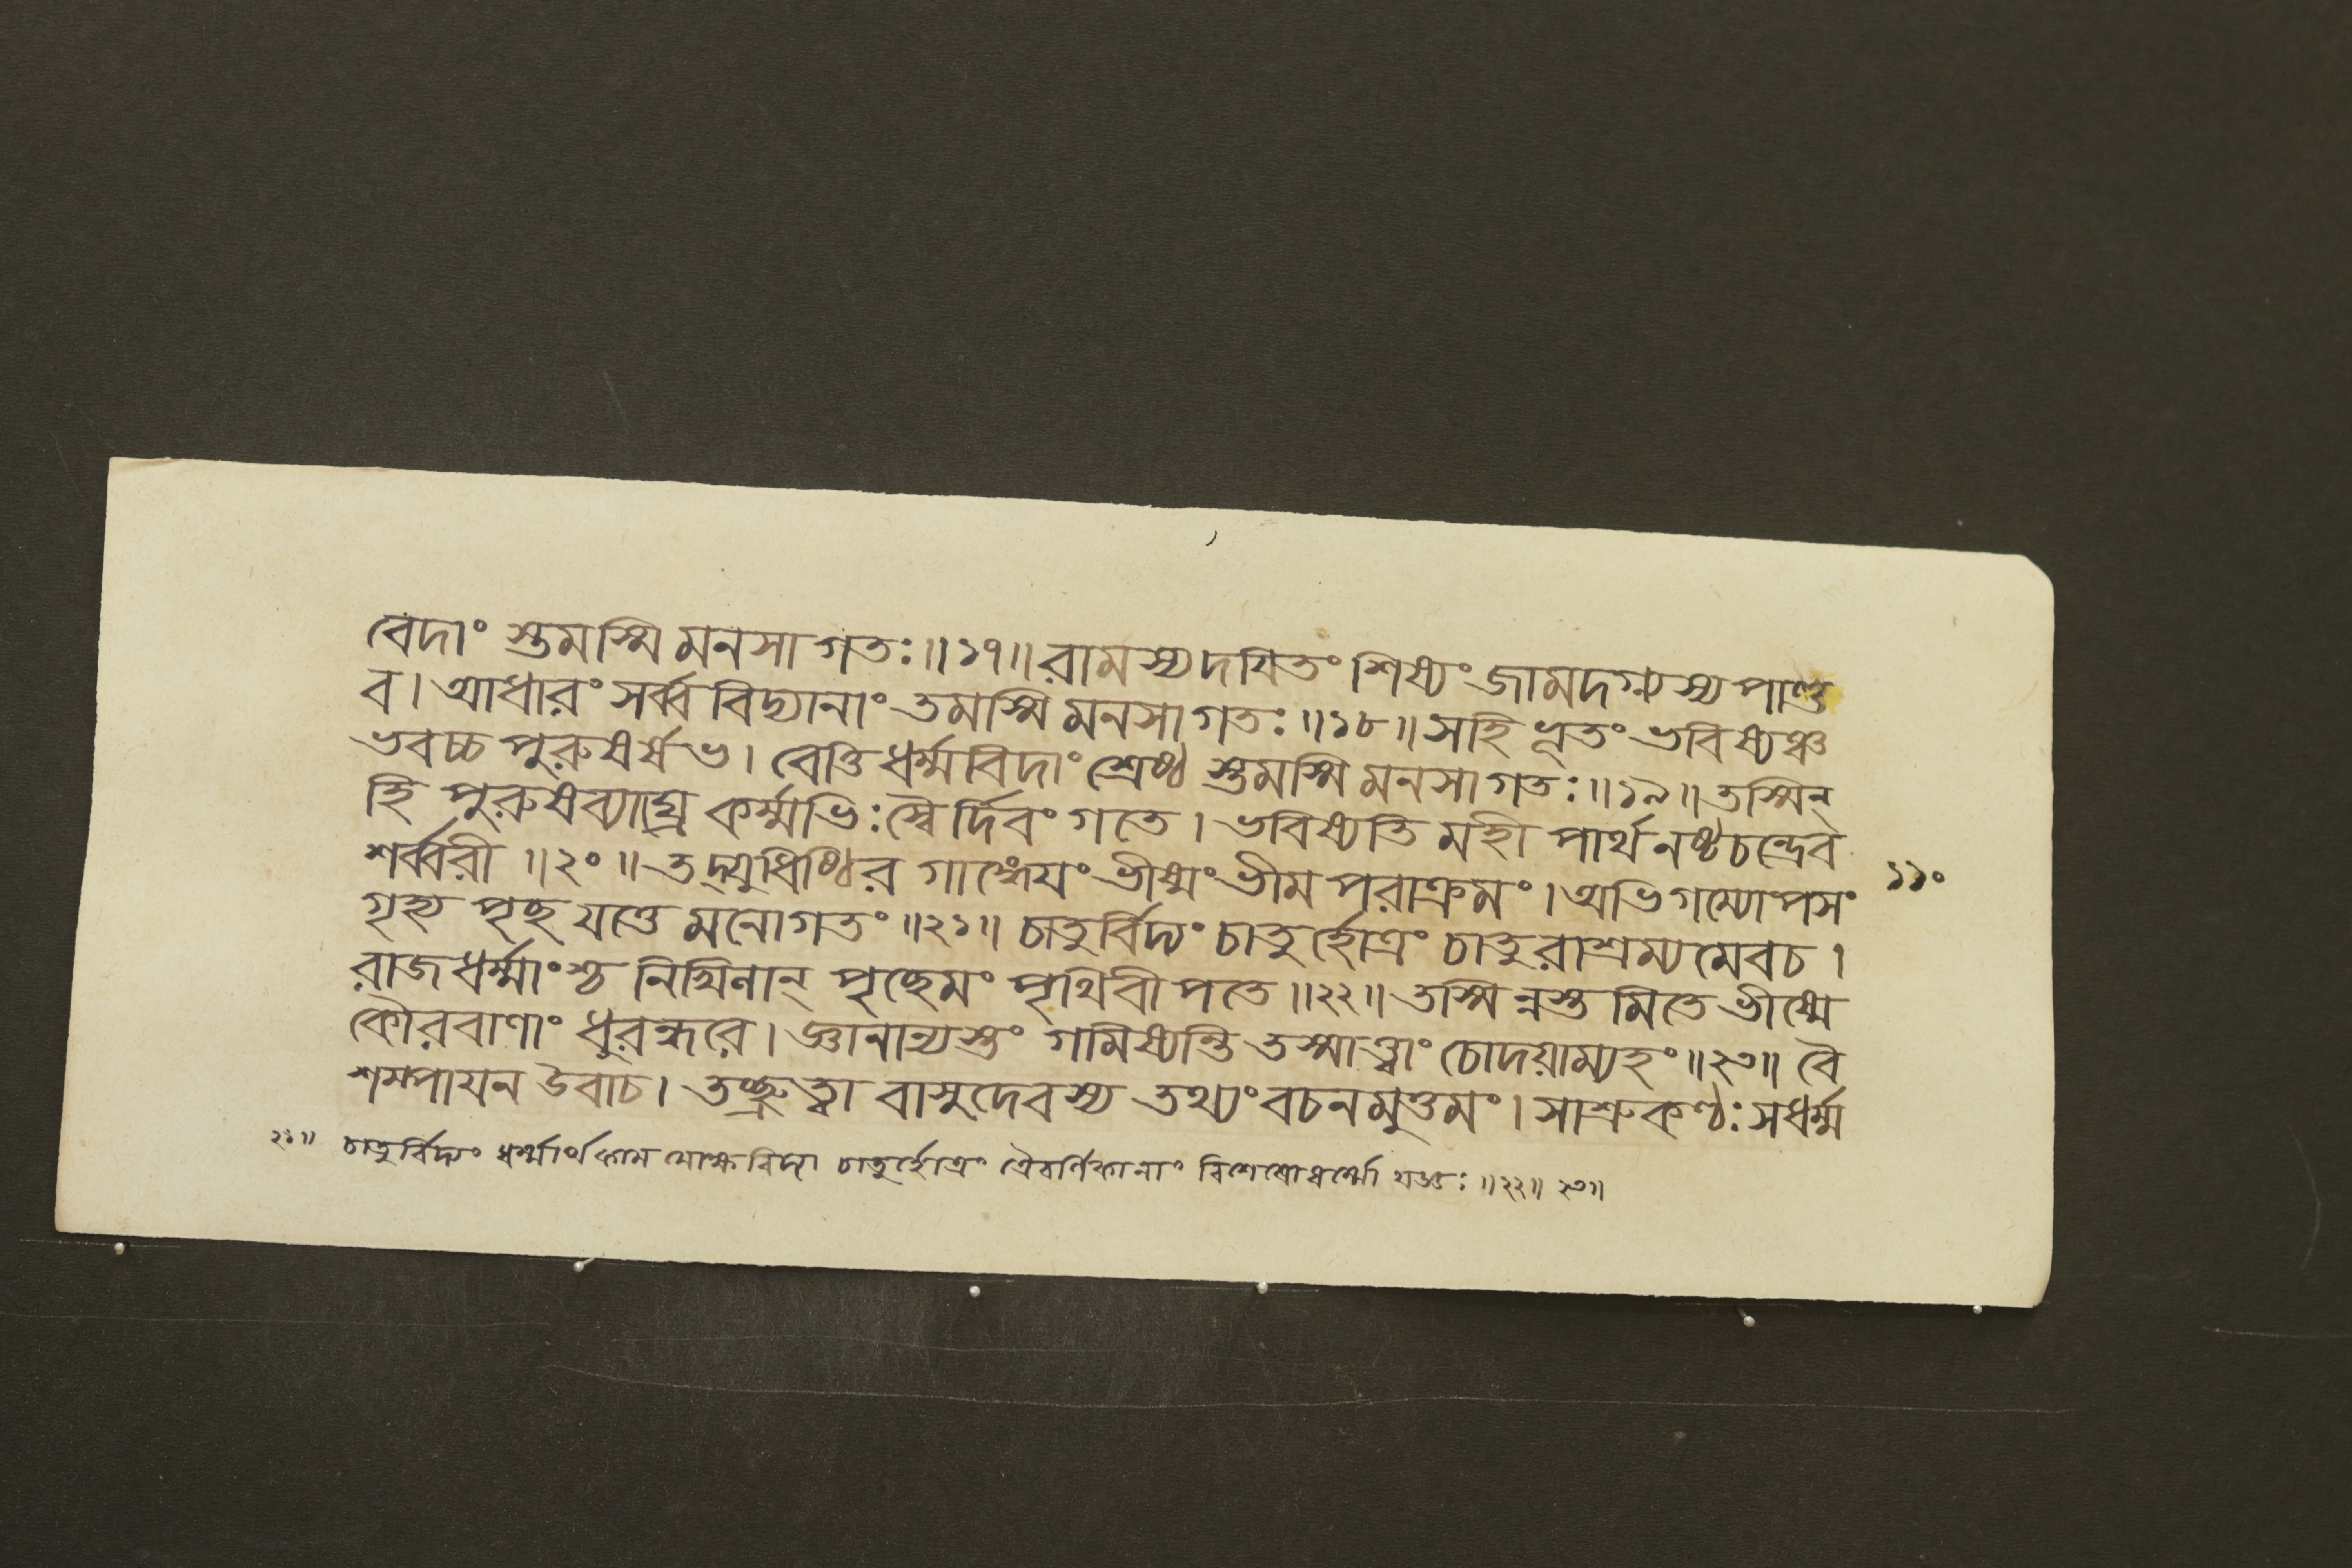 বেদাংস্তমস্মি মনসা গতঃ॥১৭॥ রামস্য দয়িতং শিষ্যং জামদগ্ন্যস্য পাণ্ড
ব। আধারং সর্ব্ববিদ্যানাং তমস্মি মনসা গতঃ॥১৮॥ সহি ভূতং ভবিষ্যঞ্চ
ভবচ্চ পুরুষর্ষভ। বেত্তি ধর্ম্মবিদাং শ্রেষ্ঠ স্তমস্মি মনসা গতঃ॥১৯॥ তস্মিন্
হি পুরুষব্যাঘ্র কর্ম্মভিঃ স্বৈর্দিবং গতে। ভবিষ্যতি মহী পার্থ নষ্টচন্দ্রেব
শর্ব্বরী॥২০॥ তদ্যুধিষ্ঠির গাঙ্গেয়ং ভীষ্মং ভীমপরাক্রমং। অভিগম্যোপসং
১১০
গৃহ্য পৃছ যত্তে মনোগতং॥২১॥ চাতুর্বিদ্যং চাতুর্হোত্রং চাতুরাশ্রম্যমেবচ।
রাজধর্ম্মাংশ্চ নিখিলান্ পৃছেমং পৃথিবীপতে॥২২॥ তস্মিন্নস্তমিতে ভীষ্মে
কৌরবাণাং ধুরন্ধরে। জ্ঞানান্যস্তং গমিষ্যন্তি তস্মাত্ত্বাং চোদয়াম্যহং॥২৩॥ বৈ
শম্পায়ন উবাচ। তচ্ছ্রুত্বা বাসুদেবস্য তথ্যং বচনমুত্তমং। সাশ্রুকণ্ঠঃ সধর্ম্ম
২১॥ চাতুর্বিদ্যং ধর্ম্মার্থকামমোক্ষবিদ্যা চাতুর্হোত্রং ত্রৈবর্ণিকানাং বিশেষোধর্ম্মো যজ্ঞঃ॥২২॥ ২৩॥